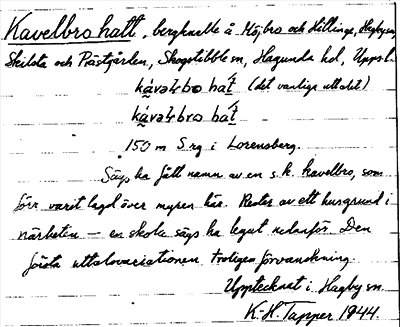 Kavelbro hatt, bergknalle å Höjbro och Hällinge, Hagby sn,
Skilsta och Prästgården, Skogstibble sn, Hagunda hd, Uppsl.
kávaɫbo hat (det vanliga uttalet)
kávaɫbro hat
150 m S rg i Lorensberg.
Säges ha fått namn av en s.k. kavelbro, som
förr varit lagd över myren här. Rester av ett husgrund i
närheten – en skola säges ha legat nedanför. Den
första uttalsvariationen troligen förvanskning.
Upptecknat i Hagby sn.
K.-H. Tapper 1944.